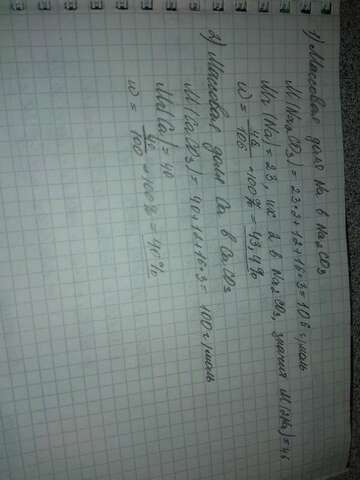 1) Массовая доля Na в Na2CO3
M(Na2CO3) = 23·2+12+16·3 = 106 г/моль
Mr(Na) = 23, их 2 в Na2CO3, значит M(2Na) = 46
w = 46/106 ·100% = 43,4%
2) Массовая доля Ca в CaCO3
M(CaCO3) = 40+12+16·3 = 100 г/моль
Mr(Ca) = 40
w = 40/100 ·100% = 40%